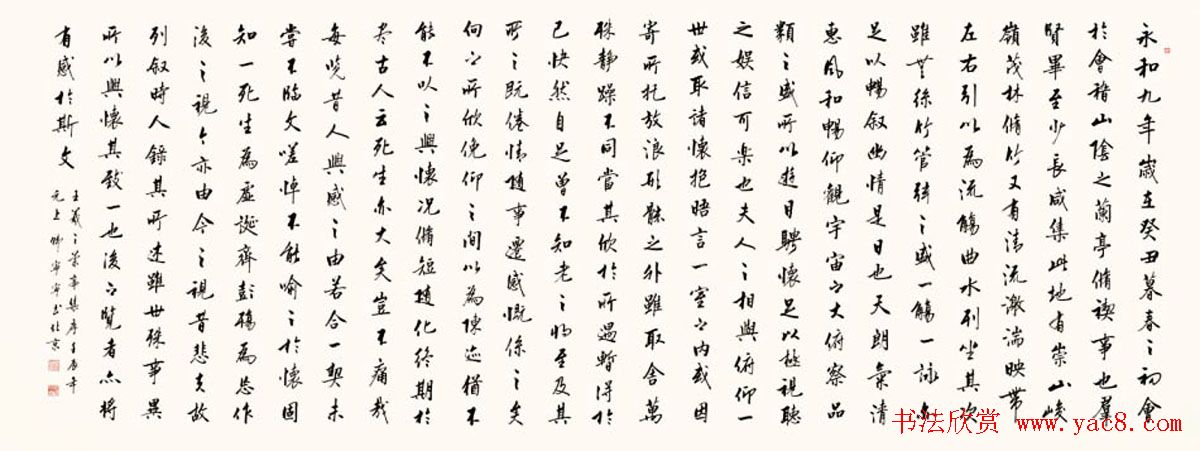 永和九年歲在癸丑暮春之初會
於會稽山陰之蘭亭脩禊事也羣
賢畢至少長咸集此地有崇山峻
嶺茂林脩竹又有清流激湍映帶
左右引以為流觴曲水列坐其次
雖無絲竹管弦之盛一觴一詠亦
足以暢敘幽情是日也天朗氣清
惠風和暢仰觀宇宙之大俯察品
類之盛所以遊目騁懷足以極視聽
之娛信可樂也夫人之相與俯仰一
世或取諸懷抱晤言一室之內或因
寄所托放浪形骸之外雖取舍萬
殊靜躁不同當其欣於所遇暫得於
己快然自足曾不知老之將至及其
所之既倦情隨事遷感慨係之矣
向之所欣俛仰之間以為陳迹猶不
能不以之興懷況脩短隨化終期於
盡古人云死生亦大矣豈不痛哉
每覽昔人興感之由若合一契未
嘗不臨文嗟悼不能喻之於懷固
知一死生為虛誕齊彭殤為妄作
後之視今亦由今之視昔悲夫故
列敘時人錄其所述雖世殊事異
所以興懷其致一也後之覽者亦將
有感於斯文
王羲之蘭亭集序壬辰年
书法欣赏 www.yac8.com